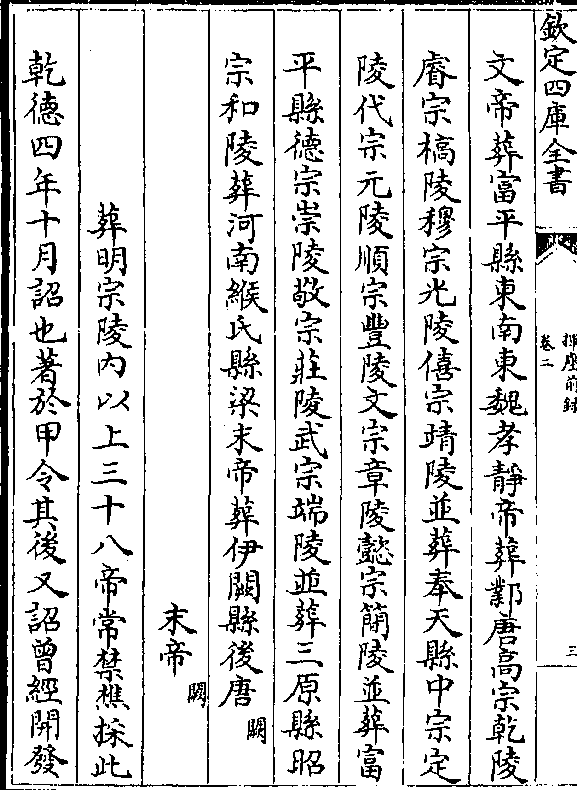 欽定四庫全書
揮麈前録
卷二
三
文帝葬富平縣東南東魏孝靜帝葬鄴唐高宗乾陵
睿宗橋陵穆宗光陵僖宗靖陵並葬奉天縣中宗定
陵代宗元陵順宗豐陵文宗章陵懿宗簡陵並葬富
平縣德宗崇陵敬宗莊陵武宗端陵並葬三原縣昭
宗和陵葬河南緱氏縣梁末帝葬伊闕縣後唐闕
末帝闕
葬明宗陵内以上三十八帝常禁樵採此
乾德四年十月詔也著於甲令其後又詔曾經開發